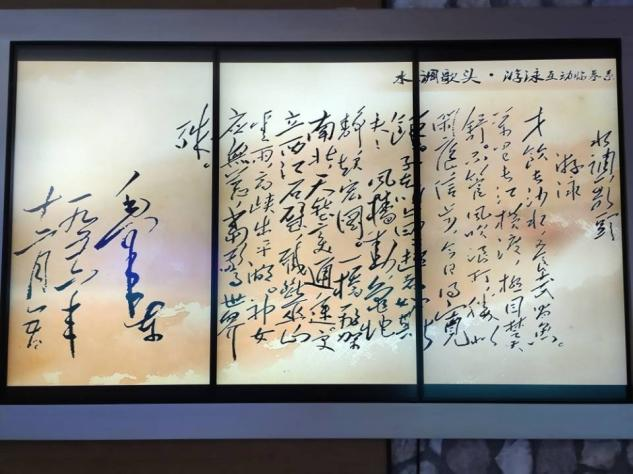 水调歌头·游泳互动临摹系
水调歌头
游泳
才饮长沙水又食武昌鱼。
万里长江横渡,极目楚天
舒。不管风吹浪打,胜似
闲庭信步,今日得宽
夫!风樯动,龟蛇
静,起宏图。一桥飞架
南北,天堑变通途。更
立西江石壁,截断巫山
云雨,高峡出平湖。神女
应无恙,当惊世界
殊。
毛泽东
一九五六年
十二月五日